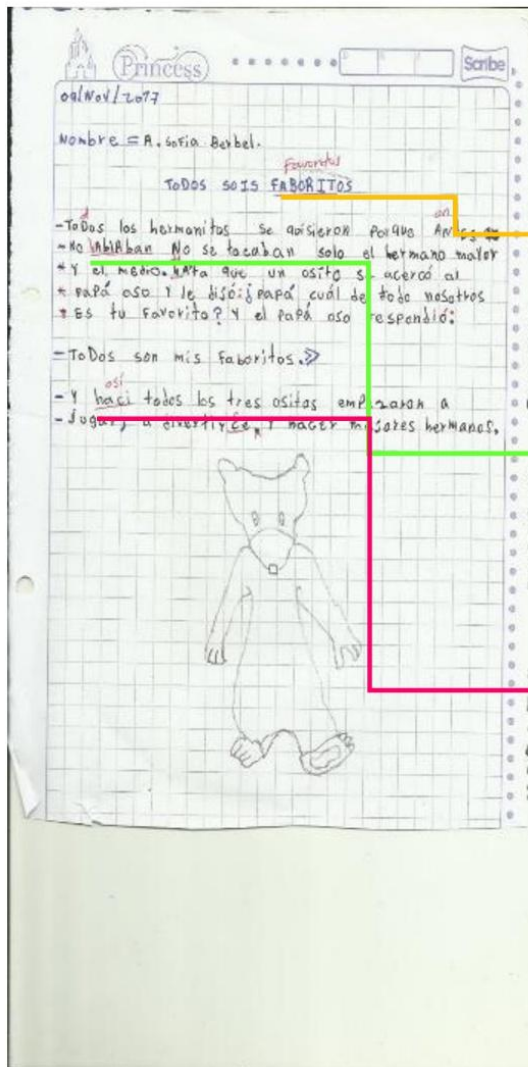 Princess
Scribe
09/Nov/2017
Nombre = A. Sofia Berbel.
Favoritos
ToDOS SOIS FABORITOS
d
an
-ToDos los hermanitos se quisieron porque ANtes
-No hAblAban No se tocaban solo el hermano mayor
* Y el medio. hAta que un osito se acercó al
* papá oso Y le disó:¡ papá cuál de todo nosotros
* Es tu Favorito? Y el papá oso respondió:
-ToDos son mis Faboritos.»
así
- Y haci todos los tres ositos empezaron a
- Jugar, a divertirce, Y hacer mejores hermanos.